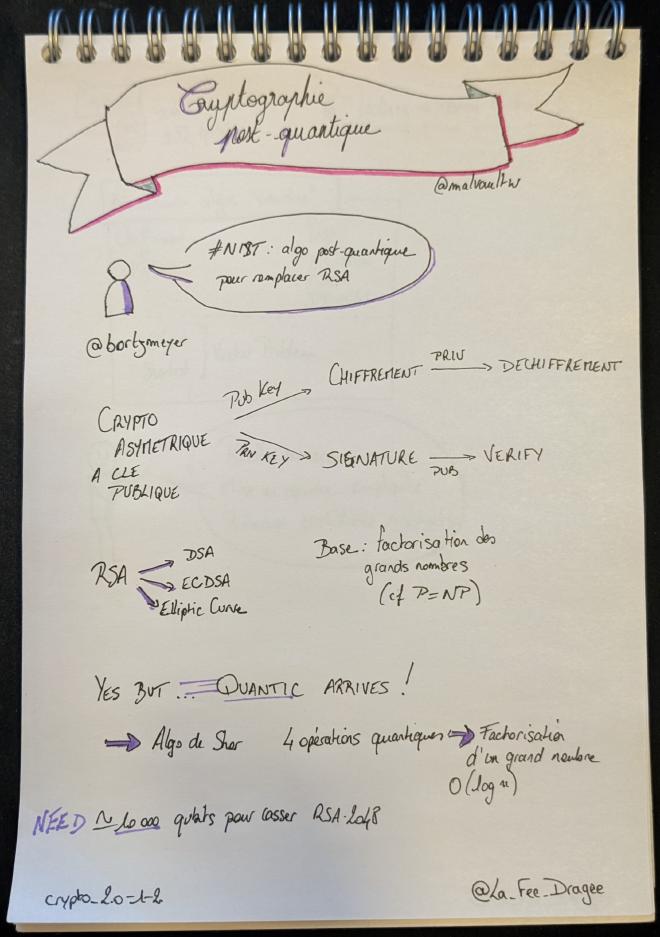 Cryptographie
post-quantique
@malvaultw
#NIST : algo post-quantique
pour remplacer RSA
@bortzmeyer
CRYPTO
ASYMETRIQUE
A CLE
PUBLIQUE
Pub Key
CHIFFREMENT
PRIV
DECHIFFREMENT
PRIV KEY
SIGNATURE
PUB
VERIFY
RSA
DSA
ECDSA
Elliptic Curve
Base : factorisation des
grands nombres
(cf P=NP)
YES BUT ... QUANTIC ARRIVES !
Algo de Shor
4 opérations quantiques
Factorisation
d'un grand nombre
O(log n)
NEED ~ 10 000 qubits pour casser RSA-2048
crypto_2.0_1-2
@La_Fee_Dragee